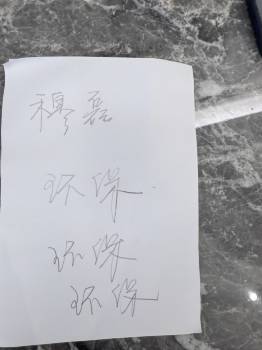 穆磊
环保
环保
环保